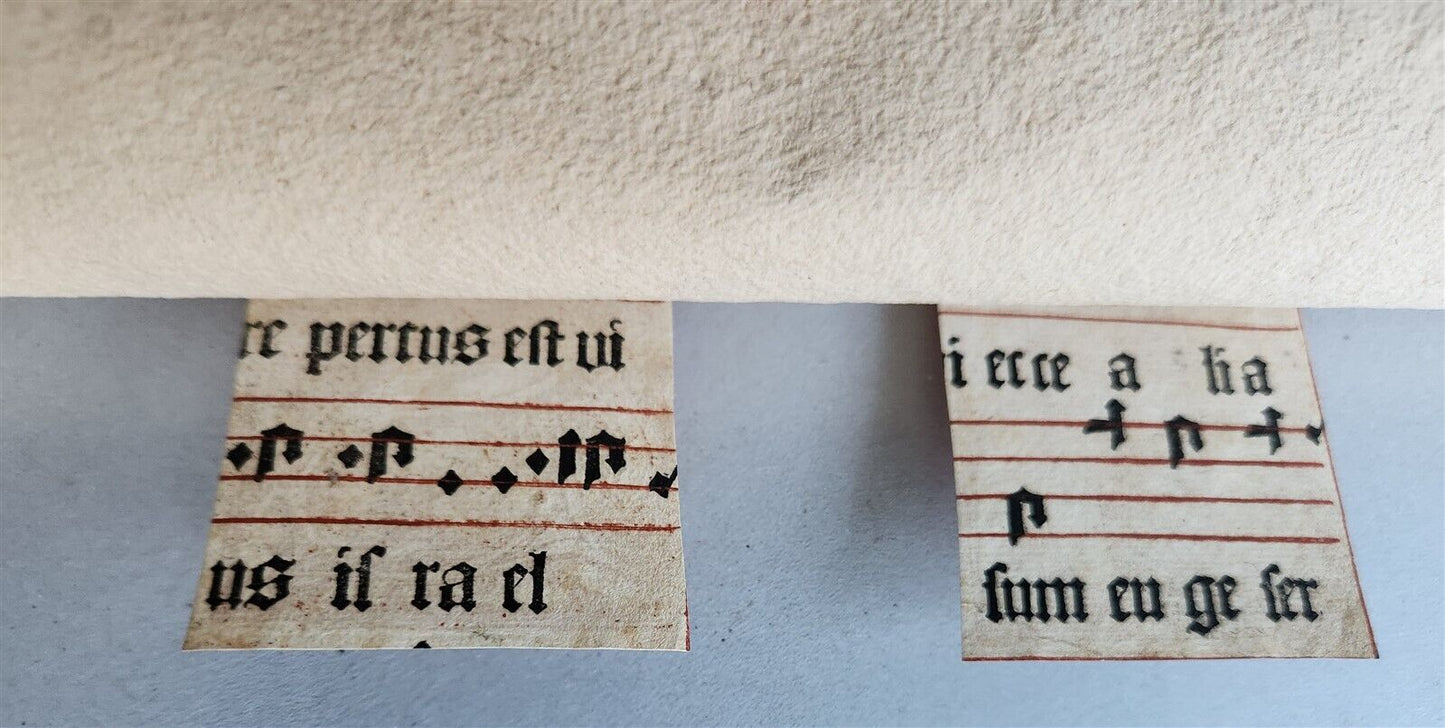 re pertus eſt vi
us iſ ra el
i ecce a lia
ſum eu ge ſer